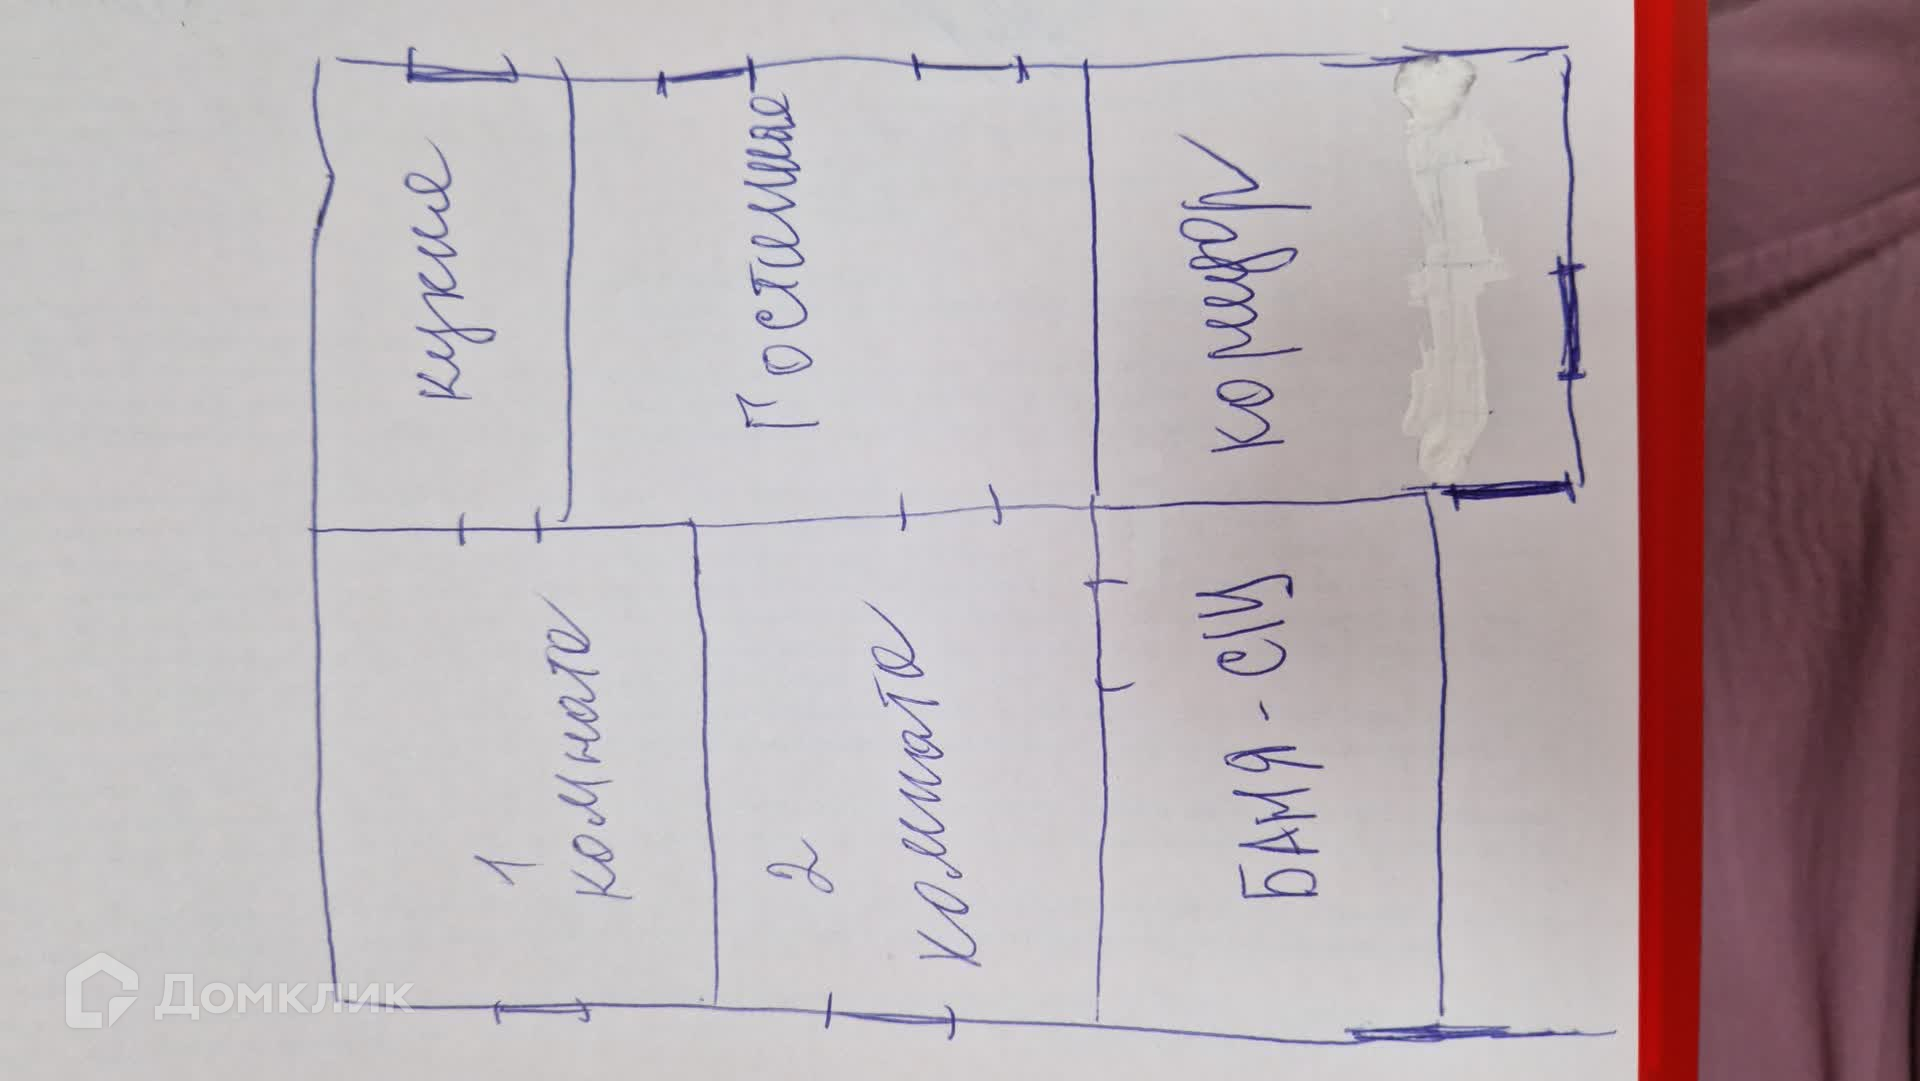 кухня
Гостиная
коридор
1
комната
2
комната
БАМЯ-СІЦ
Домклик